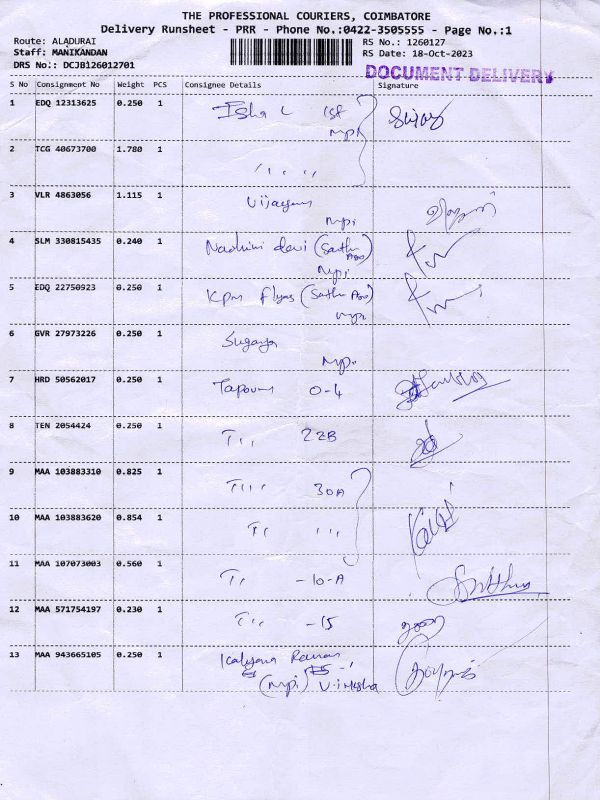 THE PROFESSIONAL COURIERS, COIMBATORE
Delivery Runsheet - PRR - Phone No.:0422-3505555 - Page No.:1
Route: ALADURAI
RS No.: 1260127
Staff: MANIKANDAN
RS Date: 18-Oct-2023
DRS No.: DCJB126012701
DOCUMENT DELIVERY
S No Consignment No Weight PCS Consignee Details Signature
1 EDQ 12313625 0.250 1 Isha L
2 TCG 40673700 1.780 1
3 VLR 4863056 1.115 1 Vijayan
mpi
4 SLM 330815435 0.240 1 Nadhini devi
mpi
5 EDQ 22750923 0.250 1 Kpm
mpi
6 GVR 27973226 0.250 1 Suganya
mpi
7 HRD 50562017 0.250 1 Tapovan 0-4
8 TEN 2054424 0.250 1 22B
9 MAA 103883310 0.825 1 30A
10 MAA 103883620 0.854 1
11 MAA 107073003 0.560 1 -10-A
12 MAA 571754197 0.230 1 -15
13 MAA 943665105 0.250 1 Kalyana Raman
(mpi)